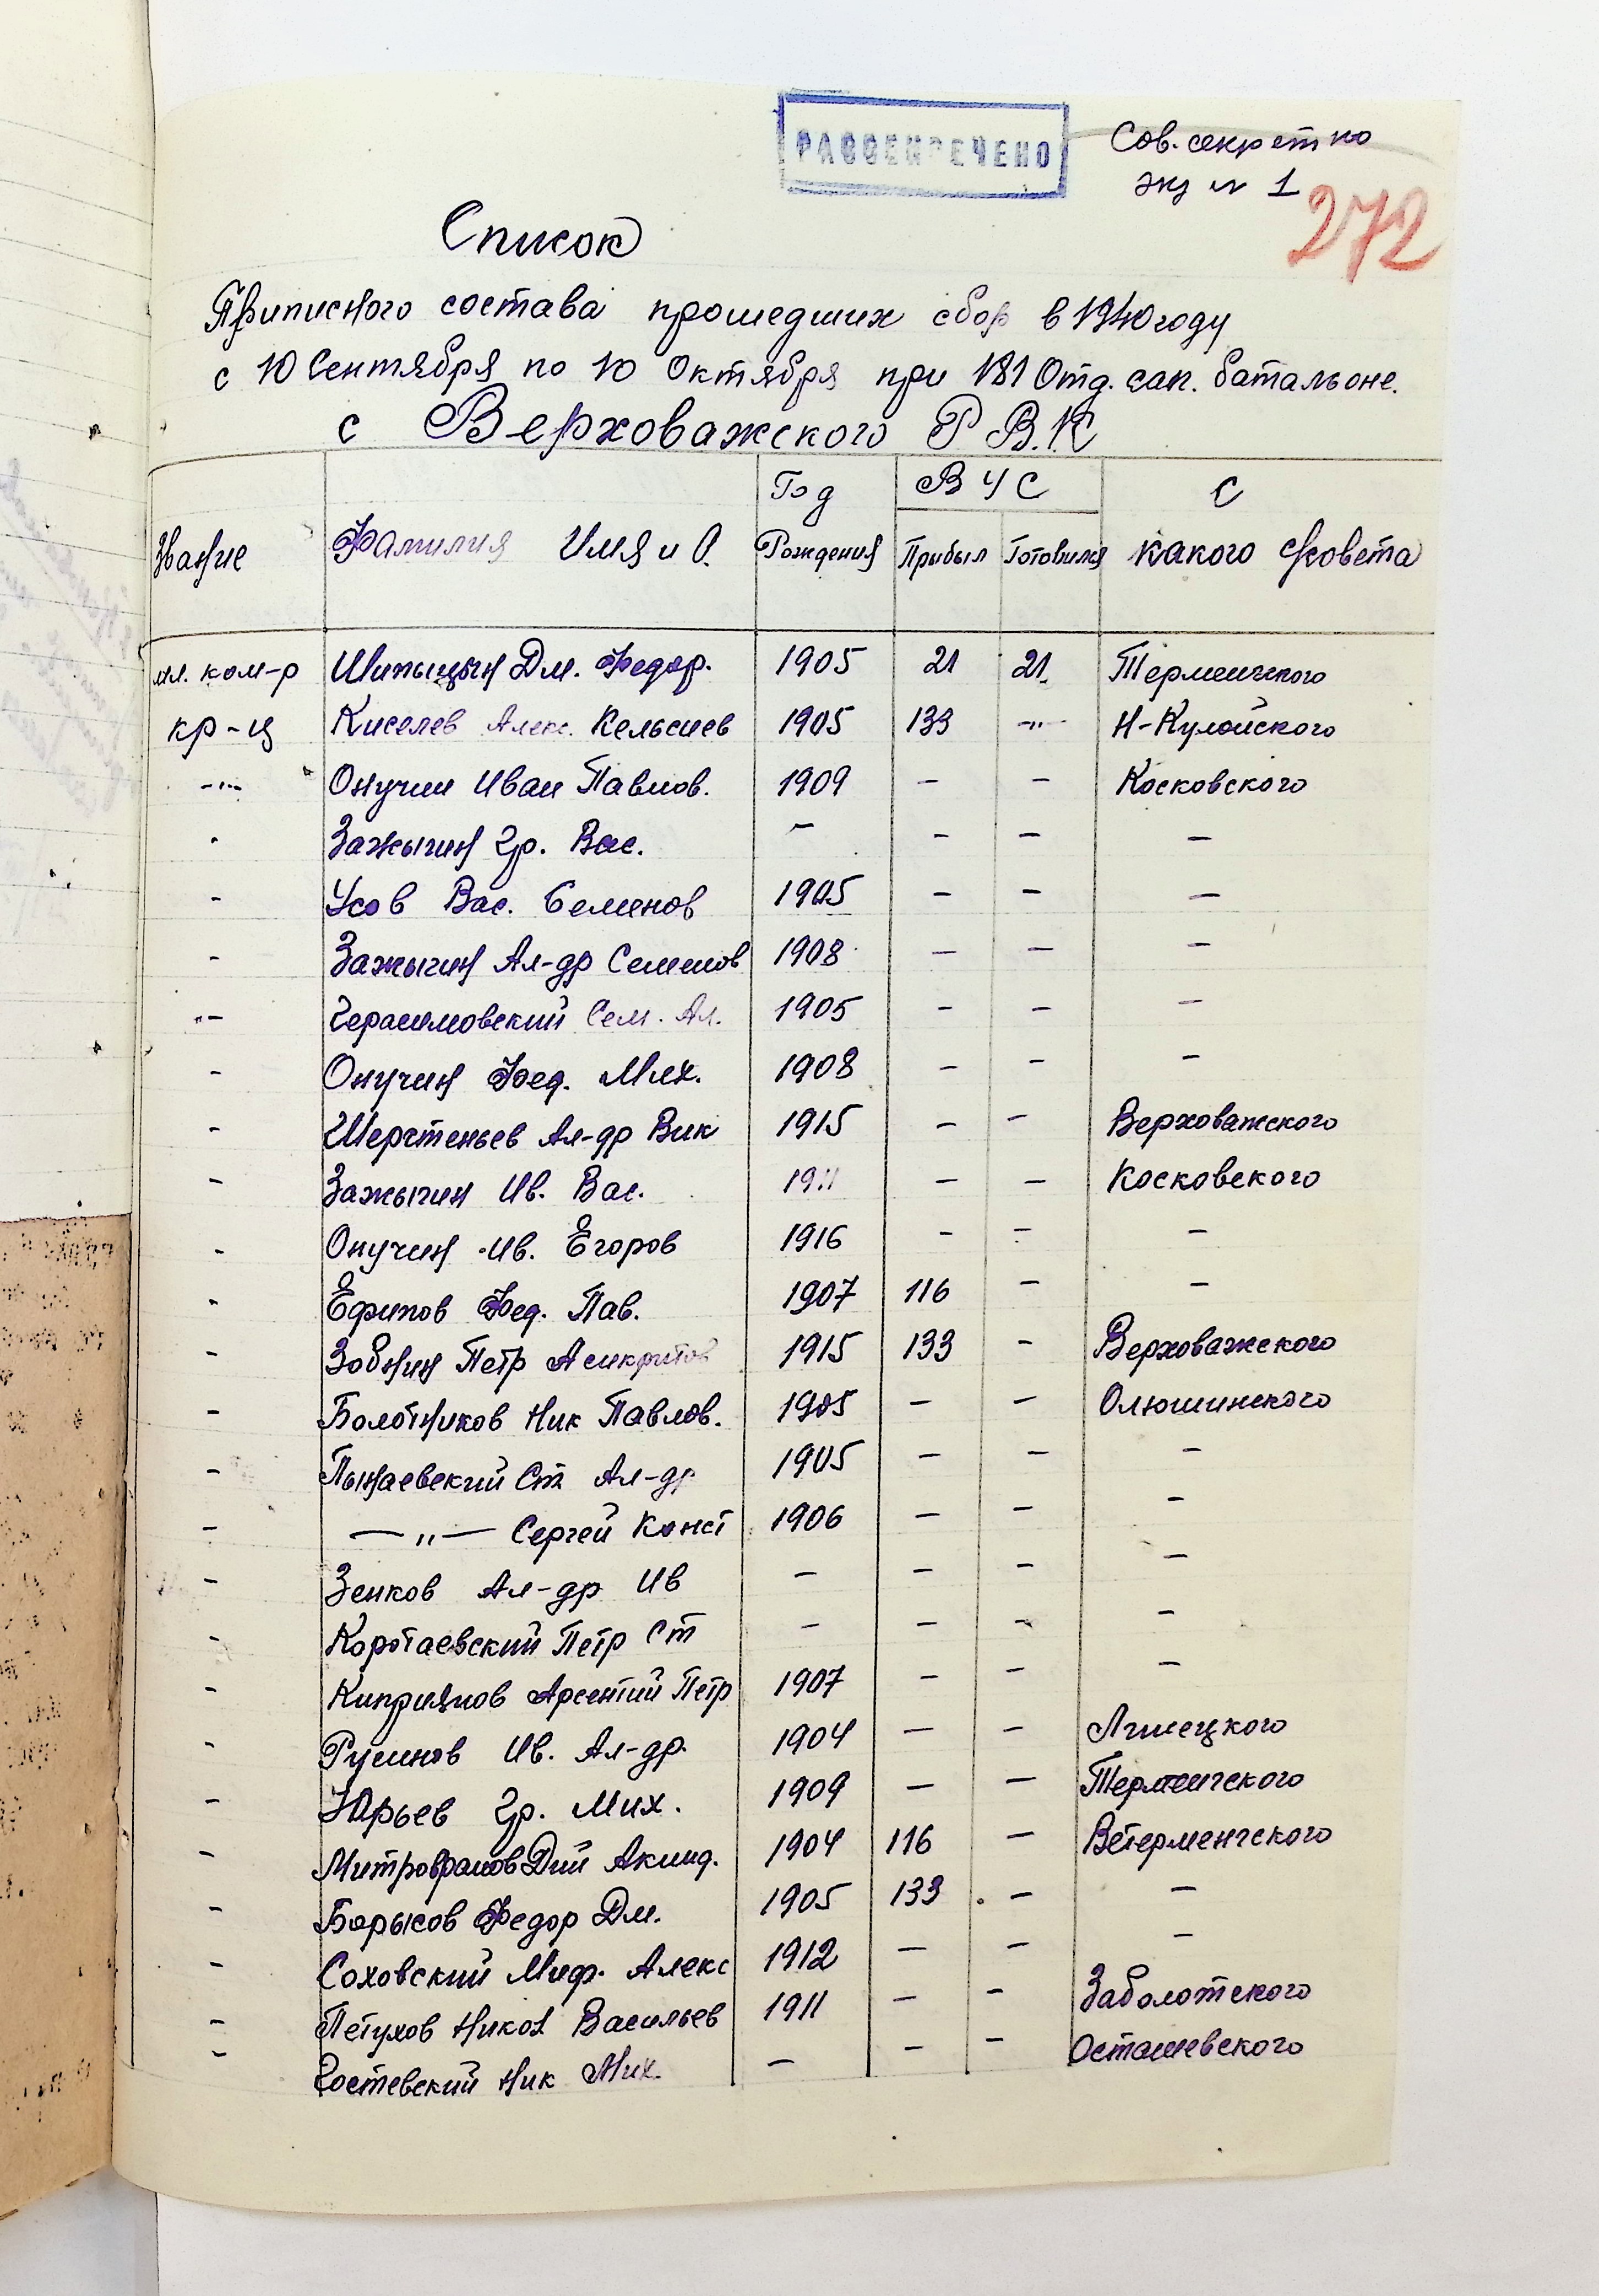 РАССЕКРЕЧЕНО
Сов. секретно
экз № 1
272
Список
Приписного состава прошедших сбор в 1940 году
с 10 Сентября по 10 Октября при 181 Отд. сап. батальоне.
с Верховажского Р.В.К
Звание Фамилия Имя и О. Год Рождения ВУС Прибыл Готовился С какого с/совета
мл. ком-р Шипыцын Дм. Федор. 1905 21 21 Терменгского
кр-ц Киселев Алекс. Кельсиев 1905 133 -"- Н-Кулойского
-"- Онучин Иван Павлов. 1909 - - Косковского
- Зажыгин Гр. Вас. - - - -
- Усов Вас. Семенов 1905 - - -
- Зажыгин Ал-др Семенов 1908 - - -
"- Герасимовский Сем. Ал. 1905 - - -
- Онучин Фед. Мих. 1908 - - -
- Шерстеньев Ал-др Вик 1915 - - Верховажского
- Зажыгин Ив. Вас. 1911 - - Косковского
- Онучин Ив. Егоров 1916 - - -
- Ефипов Фед. Пав. 1907 116 - -
- Зобнин Петр Асикритов 1915 133 - Верховажского
- Болотников Ник Павлов. 1905 - - Олюшинского
- Пынаевский Ст Ал-др 1905 - - -
- -"- Сергей Конст 1906 - - -
- Зенков Ал-др Ив - - - -
- Коротаевский Петр Ст - - - -
- Киприянов Арсентий Петр 1907 - - -
- Русинов Ив. Ал-др. 1904 - - Липецкого
- Юрьев Гр. Мих. 1909 - - Терменгского
- Митрофанов Дий Акинд. 1904 116 - Ветерменгского
- Борысов Федор Дм. 1905 133 - -
- Соховский Миф. Алекс 1912 - - -
- Петухов Никол Васильев 1911 - - Заболотского
- Гостевский Ник Мих. - - - Осташевского